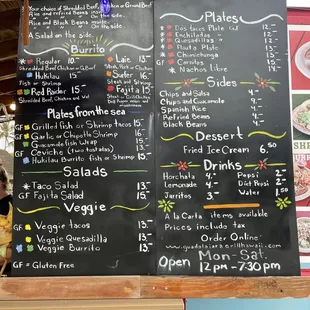 your choice of Shredded Beef, Chicken or Ground Beef
Rice and Black Beans
A Salad on the side.
Burrito
Regular 15.-
Shredded Beef Chicken or Ground Beef
Hukilau 15.-
Fish or Shrimp
Red Raider 15.-
Shredded Beef, Chicken and Veg
Laie 15.-
Steak, Pork or Chicken
Surfer 16.-
Steak or Shrimp
Fajita 15.-
Steak or Chicken
Plates from the sea
GF Grilled Fish or Shrimp tacos 15.-
GF Garlic or Chipotle Shrimp 16.-
Guacamole Fish Wrap 15.-
GF Ceviche (two tostadas) 15.-
Hukilau Burrito fish or Shrimp 15.-
Salads
Taco Salad 13.-
GF Fajita Salad 15.-
Veggie
GF Veggie tacos 13.-
GF Veggie Quesadilla 13.-
Veggie Burrito 13.-
GF = Gluten Free
Plates
Dos tacos Plate GF 12.-
Enchiladas 12.-
Quesadillas 12.-
Flauta Plato 13.-
Chimichanga 13.-
Carnitas 15.-
Nachos libre 14.-
Sides
Chips and Salsa 4.-
Chips and Guacamole 9.-
Spanish Rice 4.-
Refried Beans 4.-
Black Beans 4.-
Dessert
Fried Ice Cream 6.50
Drinks
Horchata 4.- Pepsi 2.-
Lemonade 4.- Diet Pepsi 2.-
Jarritos 3.- Water 1.-
A la Carta items available
Prices include tax
Order Online
www.guadalajaragrillhawaii.com
Open Mon-Sat.
12pm - 7:30pm